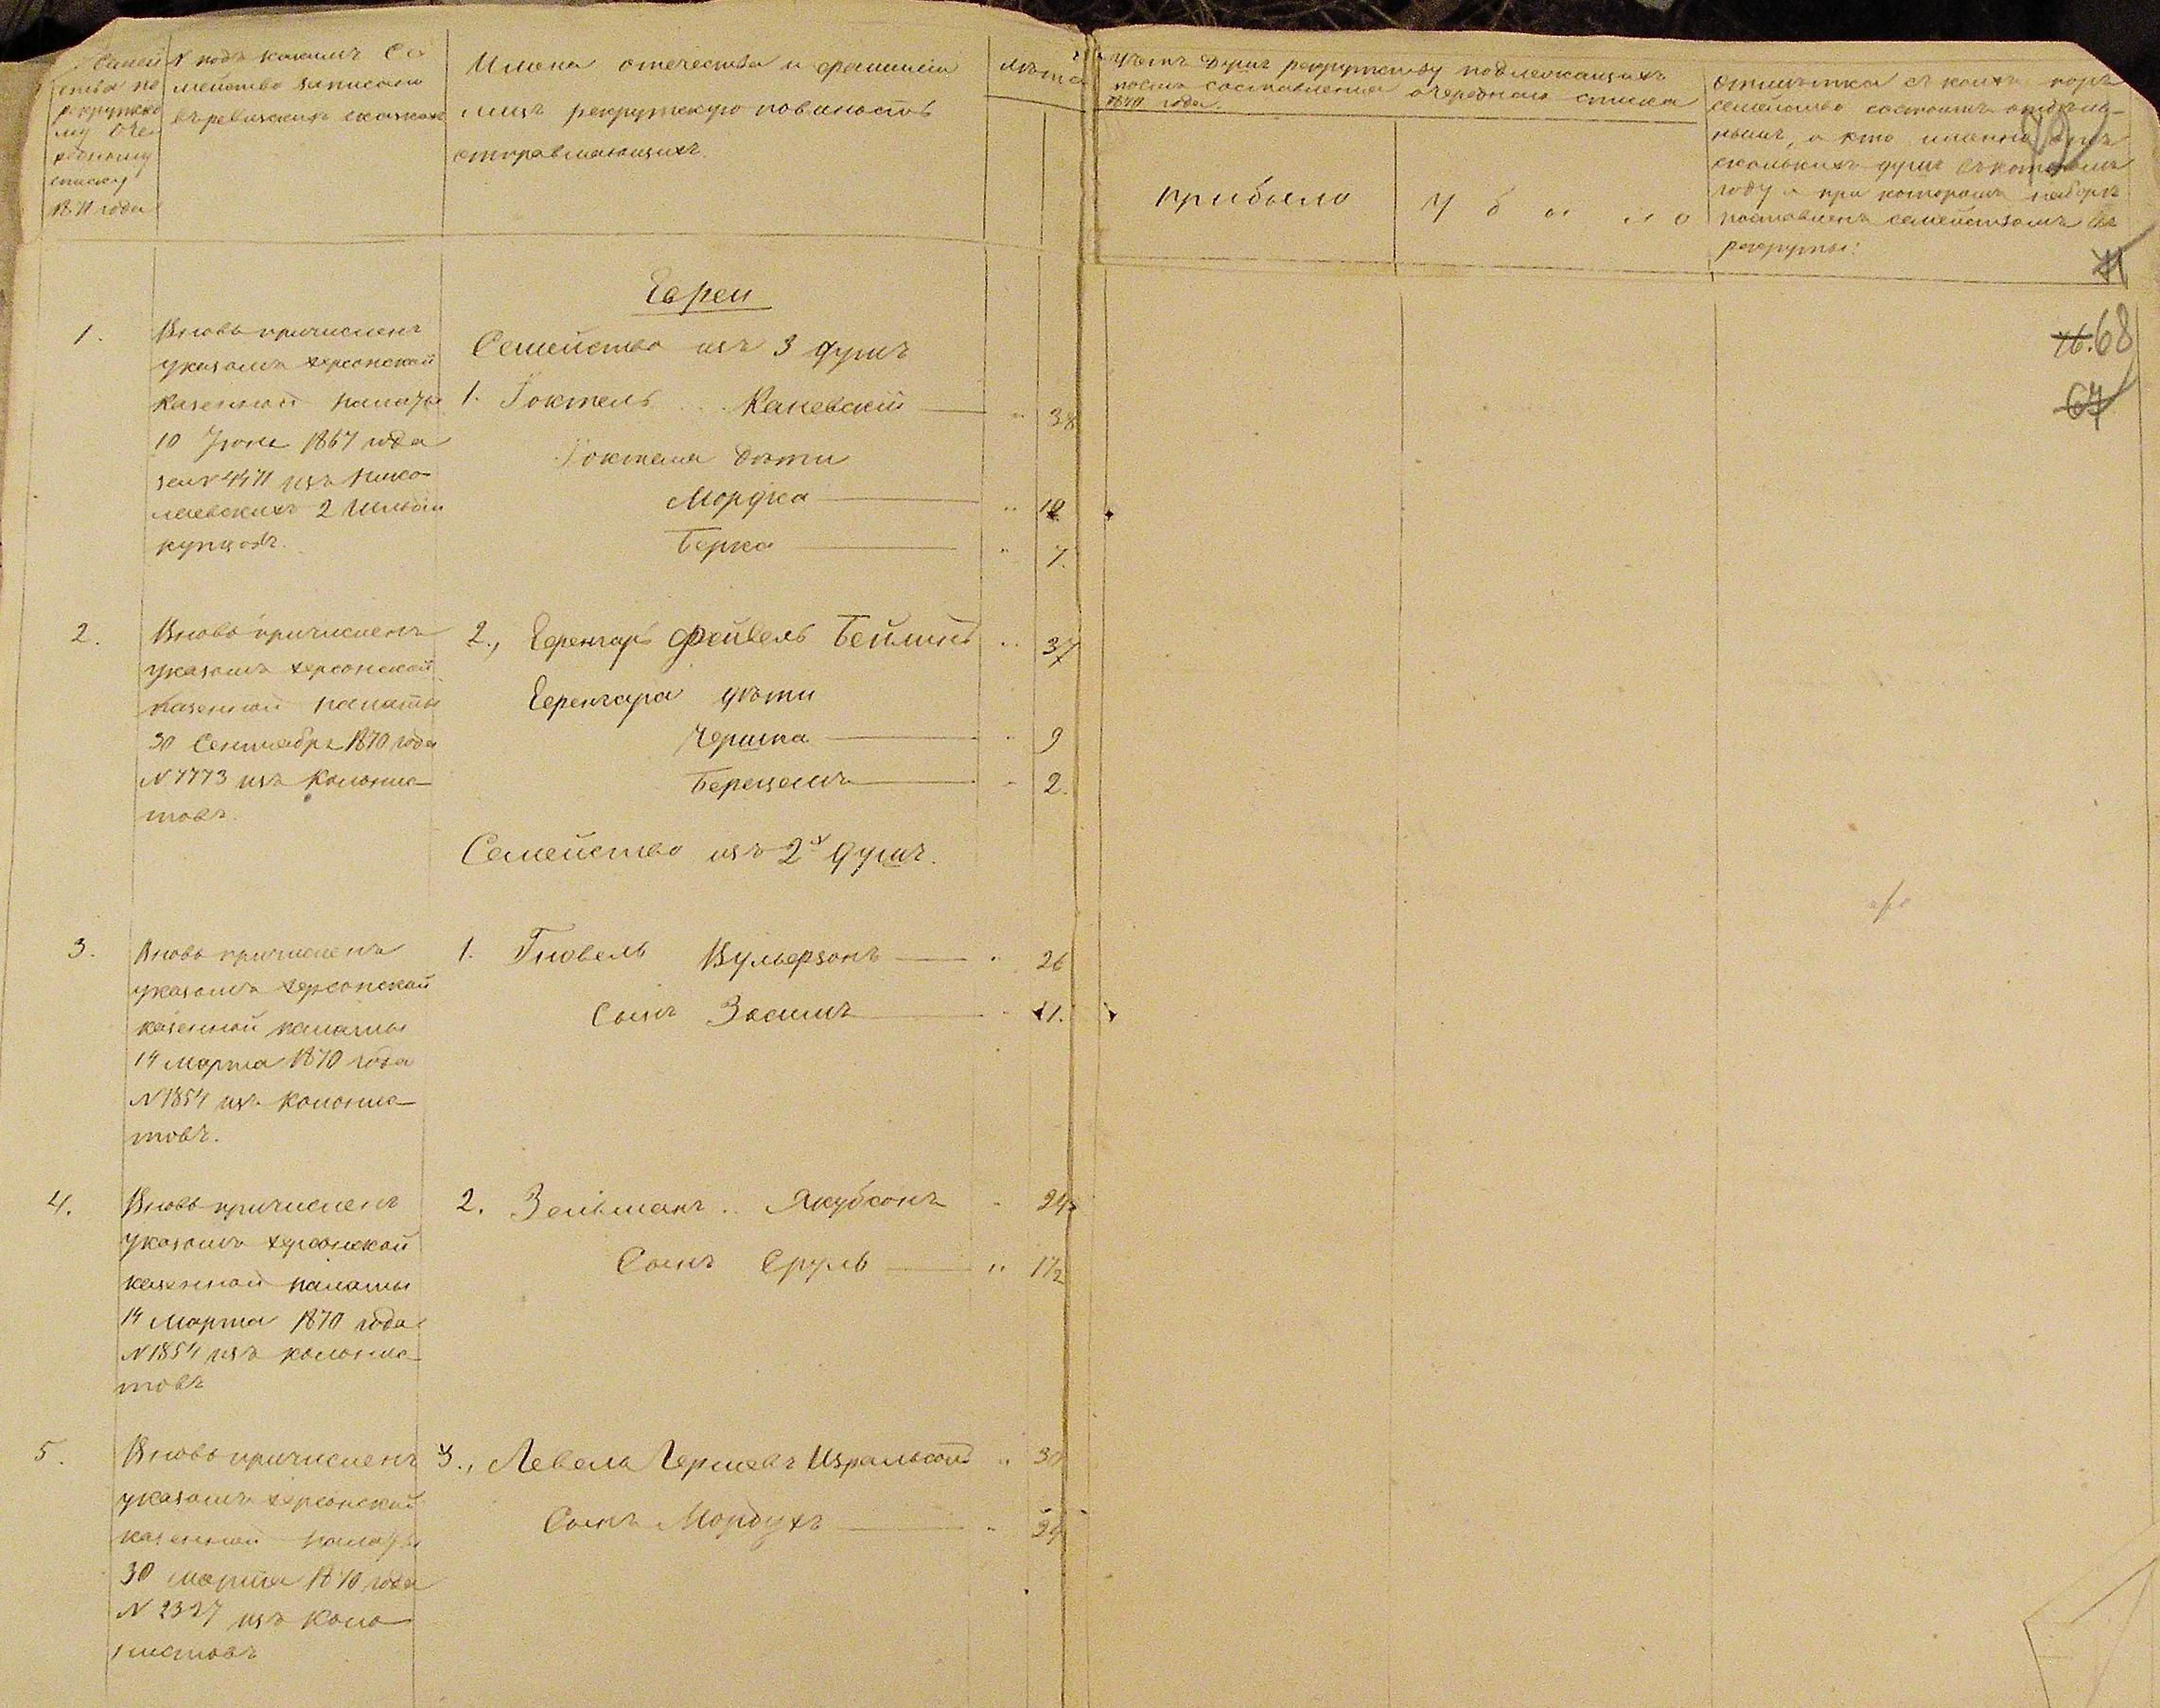 Семей
ства по
рекрутско
му оче
редному
списку
1871 года
N подъ какимъ Се
мейство записано
въ ревизскихъ сказкахъ
Имена отечества и фамиліи
лицъ рекрутскую повиность
отправляющихъ.
Лѣта
Учетъ душъ рекрутству подлежащихъ
послѣ составленія очереднаго списка
1870 года.
прибыло
Убыло
Отмѣтка съ коихъ поръ
семейство состоитъ отдѣль-
нымъ, а кто именно изъ
сколькихъ душъ въ которомъ
году и при которомъ наборѣ
поставленъ семействомъ въ
рекруты:
71
76. 68
67
Евреи
Семейство изъ 3 душъ
1.
Вновь причисленъ
указомъ Херсонской
Казенной палаты
10 Іюня 1867 года
за N 4471 изъ Нико-
лаевскихъ 2 Гильдіи
купцовъ.
1. Іоктель Каневскій 38
Іоктеля дѣти
Мордка 10
Берка 7.
2.
Вновь причисленъ
указомъ Херсонской
Казенной палаты
30 Сентября 1870 года
N 7773 изъ Колонис-
товъ.
2., Еренгаръ Фейвель Бейлинъ 37
Еренгара дѣти
Гершка 9
Берцемъ 2.
Семейство изъ 2х душъ.
3.
Вновь причисленъ
указомъ Херсонской
казенной палаты
14 Марта 1870 года
N 1854 изъ колонис-
товъ.
1. Гновель Вульфзонъ 26
Сынъ Залмъ 11.
4.
Вновь причисленъ
указомъ Херсонской
казенной палаты
14 Марта 1870 года
N 1854 изъ колонис-
товъ
2. Зельманъ Якубсонъ 24
Сынъ Сруль 1½
5.
Вновь причисленъ
указомъ Херсонской
казенной палаты
30 Марта 1870 года
N 2327 изъ Коло
нистовъ
3., Левель Гершевъ Изральсонъ 30
Сынъ Мордухъ